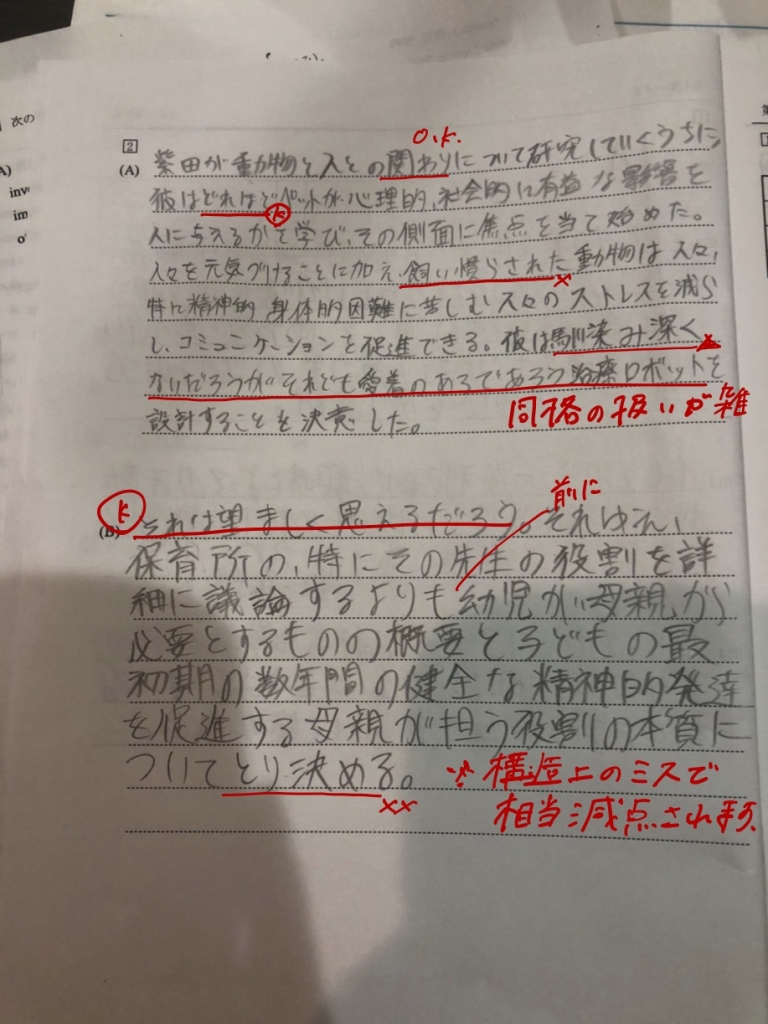 次の
A)
inv
im
o
2
O.K.
(A) 柴田が動物と人との関わりについて研究していくうちに
彼はどれほどペットが心理的、社会的に有益な影響を
K
人に与えるかを学び、その側面に焦点を当て始めた。
人々を元気づけることに加え、飼い慣らされた動物は人々、
特に精神的身体的困難に苦しむ人々のストレスを減ら
し、コミュニケーションを促進できる。彼は馴染み深く
ないだろうがそれども愛着のあるであろう治療ロボットを
設計することを決意した。
同格の扱いが雑
K
前に
(B) それは望ましく思えるだろう。それゆえ、
保育所の、特にその先生の役割を詳
細に議論するよりも幼児が母親から
必要とするものの概要と子どもの最
初期の数年間の健全な精神的発達
を促進する母親が担う役割の本質に
ついてとり決める。
∵構造上のミスで
相当減点されます。